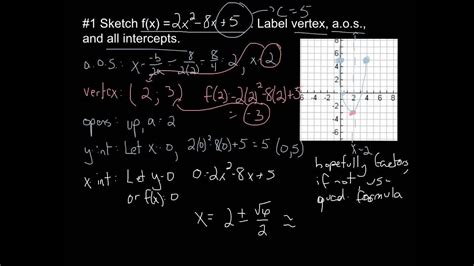 #1 Sketch f(x) = 2x²-8x+5. Label vertex, a.o.s.,
and all intercepts.
c=5
a.o.s: x = -b/2a = 8/2(2) = 8/4 = 2, x=2
vertex: (2, 3) f(2)=2(2)²-8(2)+5
= -3
opens: up, a=2
y int: Let x=0, 2(0)²-8(0)+5 = 5 (0,5)
x int: Let y=0 0=2x²-8x+5
or f(x)=0
x = 2 ± √6/2 ≈
6
4
2
0
-2
-4
-6
-8 -6 -4 -2 0 2 4 6 8
x=2
hopefully factors,
if not use
quad. formula